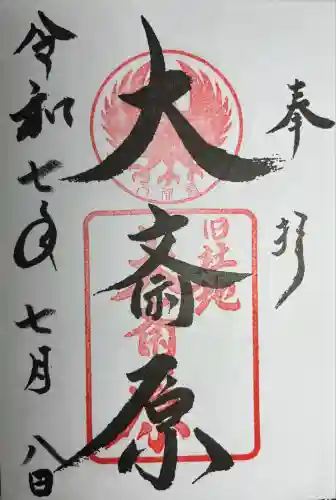 奉拝
旧社地
大斎原
大斎原
令和七年七月八日